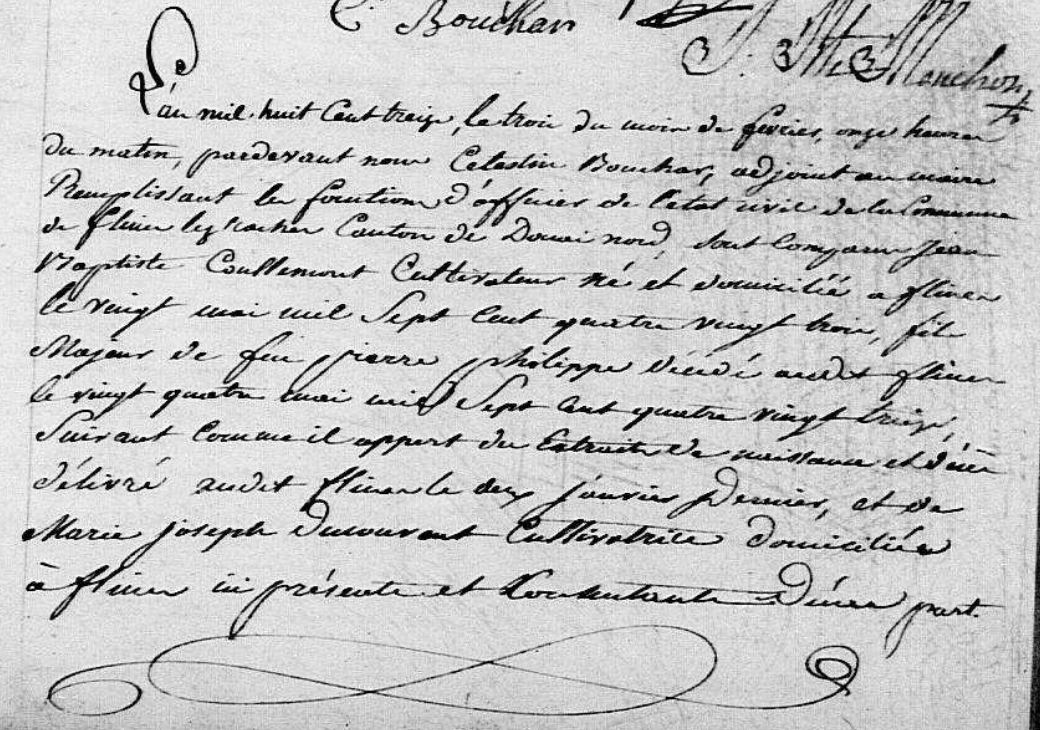 C. Bouchar
J. Bte Manchon
L'an mil huit Cent treize, le trois du mois de fevrier, onze heures
du matin, pardevant nous Celestin Bouchar, adjoint au maire
Remplissant les fonctions d'officier de l'etat civil de la Commune
de flines lez raches Canton de Douai nord, sont Comparu jean
Baptiste Coullemont Cultivateur né et domicilié a flines
le vingt mai mil Sept Cent quatre vingt trois, fils
Majeur de feu pierre philippe décédé audit flines
le vingt quatre mai mil Sept Cent quatre vingt treize,
Suivant comme il appert des Extraits de naissance et décès
délivré audit flines le deux janvier Dernier, et de
Marie joseph Ducouvant Cultivatrice domiciliée
à flines ici présente et Consentante D'une part.